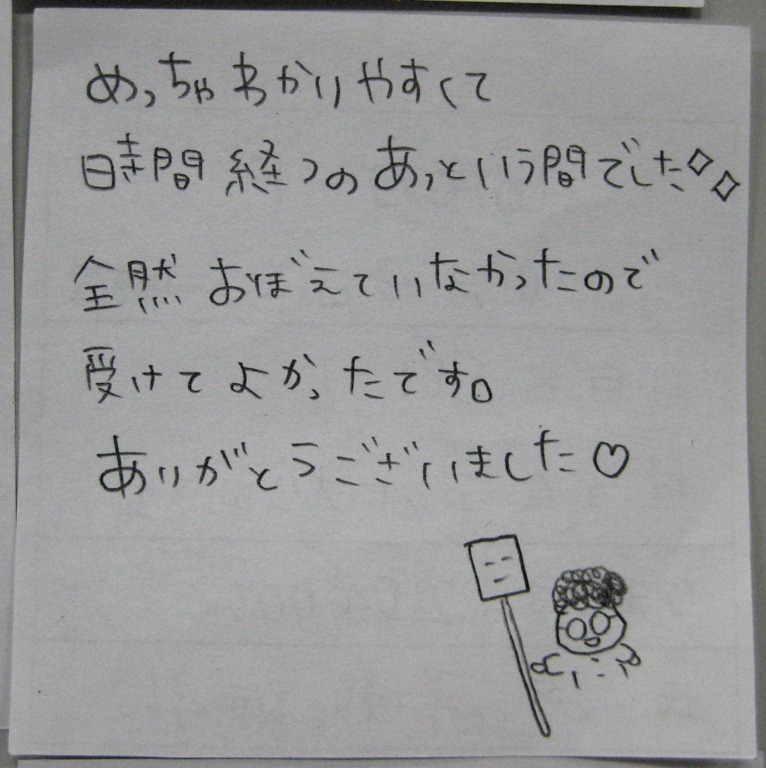 めっちゃわかりやすくて
時間経つのあっという間でした◇◇
全然おぼえていなかったので
受けてよかったです。
ありがとうございました♡